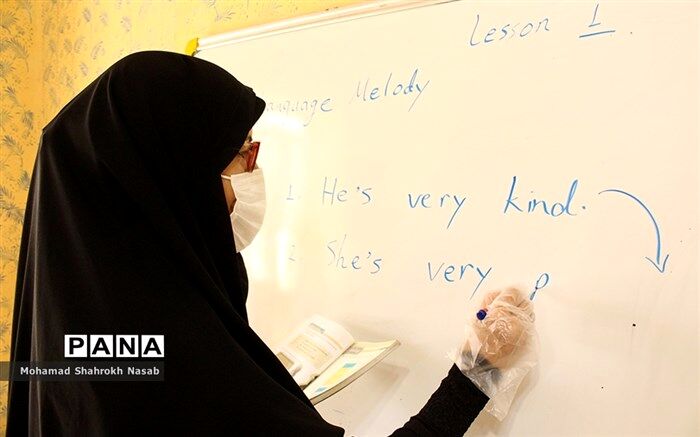 Lesson 1
Language Melody
1. He's very kind.
2. She's very p
PANA
Mohamad Shahrokh Nasab